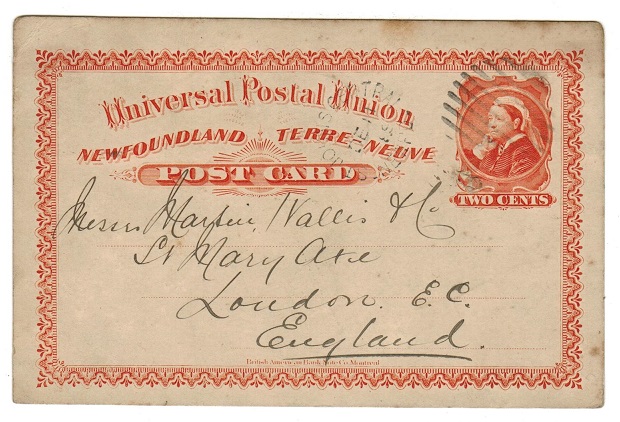 Universal Postal Union
NEWFOUNDLAND TERRE-NEUVE
POST CARD.
TWO CENTS
Messrs Martin, Wallis & Co
St Mary Axe
London. E.C.
England.
British American Bank Note Co. Montreal.